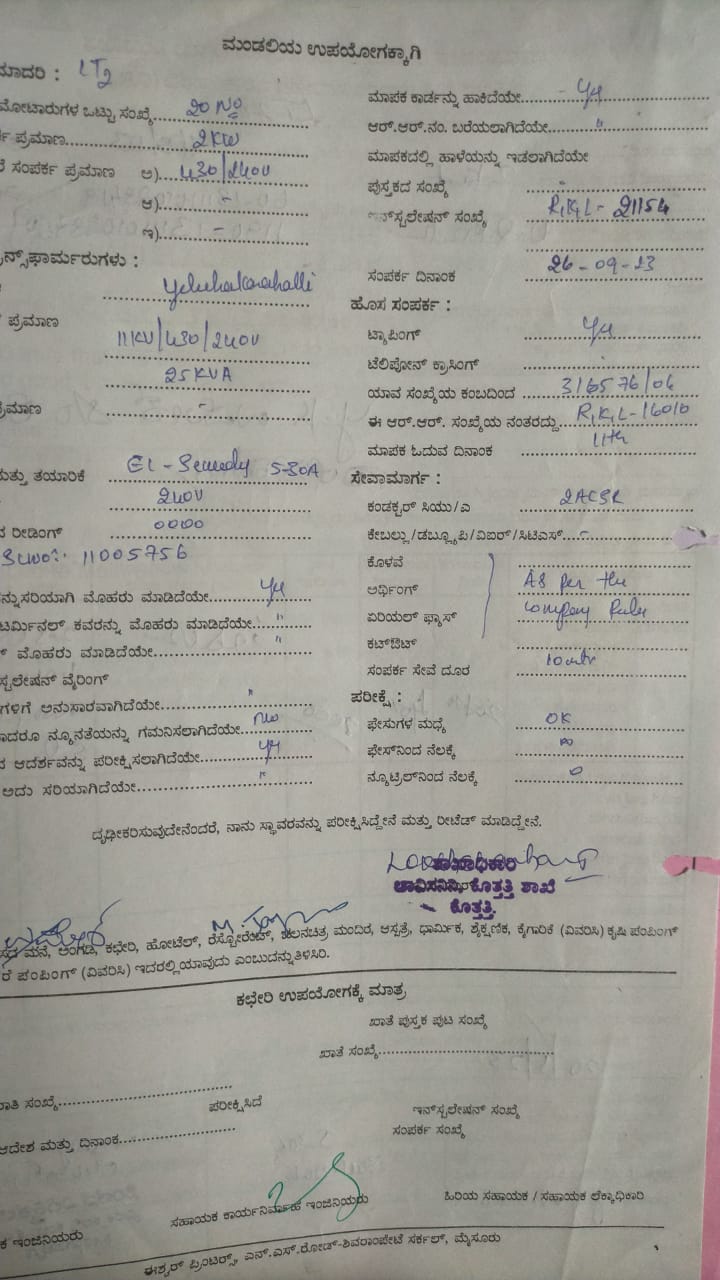 ಮಂಡಲಿಯ ಉಪಯೋಗಕ್ಕಾಗಿ
ಮಾದರಿ : LT2
ಮೋಟಾರುಗಳ ಒಟ್ಟು ಸಂಖ್ಯೆ 20 No
ಪ್ರಮಾಣ 2KW
ಸಂಪರ್ಕ ಪ್ರಮಾಣ ಅ) 430/240V
ಆ) -
ಇ) -
ನ್ಸ್‌ಫಾರ್ಮರುಗಳು :
ಪ್ರಮಾಣ
11KV/430/240V
25KVA
ಪ್ರಮಾಣ -
ಮತ್ತು ತಯಾರಿಕೆ S-30A
240V
ರೀಡಿಂಗ್ 0000
11005756
ನ್ನುಸರಿಯಾಗಿ ಮೊಹರು ಮಾಡಿದೆಯೇ
ಟರ್ಮಿನಲ್ ಕವರನ್ನು ಮೊಹರು ಮಾಡಿಧೆಯೇ "
ಮೊಹರು ಮಾಡಿದೆಯೇ "
ಸ್ಟಲೇಷನ್ ವೈರಿಂಗ್
ಗಳಿಗೆ ಅನುಸಾರವಾಗಿದೆಯೇ "
ಾದರೂ ನ್ಯೂನತೆಯನ್ನು ಗಮನಿಸಲಾಗಿದೆಯೇ no
ಆದರ್ಶವನ್ನು ಪರೀಕ್ಷಿಸಲಾಗಿದೆಯೇ
ಅದು ಸರಿಯಾಗಿದೆಯೇ "
ಮಾಪಕ ಕಾರ್ಡನ್ನು ಹಾಕಿದೆಯೇ
ಆರ್.ಆರ್.ನಂ. ಬರೆಯಲಾಗಿದೆಯೇ "
ಮಾಪಕದಲ್ಲಿ ಹಾಳೆಯನ್ನು ಇಡಲಾಗಿದೆಯೇ
ಪುಸ್ತಕದ ಸಂಖ್ಯೆ
ಇನ್‌ಸ್ಟಲೇಷನ್ ಸಂಖ್ಯೆ R,K,L - 21154
ಸಂಪರ್ಕ ದಿನಾಂಕ 26-09-23
ಹೊಸ ಸಂಪರ್ಕ :
ಟ್ಯಾಪಿಂಗ್
ಟೆಲಿಫೋನ್ ಕ್ರಾಸಿಂಗ್
ಯಾವ ಸಂಖ್ಯೆಯ ಕಂಬದಿಂದ 316576/06
ಈ ಆರ್.ಆರ್. ಸಂಖ್ಯೆಯ ನಂತರದ್ದು R,K,L-16010
ಮಾಪಕ ಓದುವ ದಿನಾಂಕ 11th
ಸೇವಾಮಾರ್ಗ :
ಕಂಡಕ್ಟರ್ ಸಿಯು/ಎ 2ACSR
ಕೇಬಲ್ಲು/ಡಬ್ಲ್ಯೂಪಿ/ವಿಐರ್/ಸಿಟಿಎಸ್
ಕೊಳವೆ
ಅರ್ಥಿಂಗ್ As per the
ಏರಿಯಲ್ ಫ್ಯೂಸ್ company Rules
ಕಟ್‌ಔಟ್
ಸಂಪರ್ಕ ಸೇವೆ ದೂರ 10
ಪರೀಕ್ಷೆ :
ಫೇಸುಗಳ ಮಧ್ಯೆ OK
ಫೇಸ್‌ನಿಂದ ನೆಲಕ್ಕೆ
ನ್ಯೂಟ್ರಲ್‌ನಿಂದ ನೆಲಕ್ಕೆ 0
ದೃಢೀಕರಿಸುವುದೇನೆಂದರೆ, ನಾನು ಸ್ಥಾವರವನ್ನು ಪರೀಕ್ಷಿಸಿದ್ದೇನೆ ಮತ್ತು ರೀಟೆಡ್ ಮಾಡಿದ್ದೇನೆ.
ಶಾಖಾಧಿಕಾರಿ
ಚಾವಿಸನಿನಿ, ಕೊತ್ತತ್ತಿ ಶಾಖೆ
ಕೊತ್ತತ್ತಿ.
ಮನೆ, ಅಂಗಡಿ, ಕಛೇರಿ, ಹೋಟೆಲ್, ರೆಸ್ಟೋರೆಂಟ್, ಚಲನಚಿತ್ರ ಮಂದಿರ, ಆಸ್ಪತ್ರೆ, ಧಾರ್ಮಿಕ, ಶೈಕ್ಷಣಿಕ, ಕೈಗಾರಿಕೆ (ವಿವರಿಸಿ) ಕೃಷಿ ಪಂಪಿಂಗ್
ರೆ ಪಂಪಿಂಗ್ (ವಿವರಿಸಿ) ಇದರಲ್ಲಿ ಯಾವುದು ಎಂಬುದನ್ನು ತಿಳಿಸಿರಿ.
ಕಛೇರಿ ಉಪಯೋಗಕ್ಕೆ ಮಾತ್ರ
ಖಾತೆ ಪುಸ್ತಕ ಪುಟ ಸಂಖ್ಯೆ
ಖಾತೆ ಸಂಖ್ಯೆ
ಾತಿ ಸಂಖ್ಯೆ ಪರೀಕ್ಷಿಸಿದೆ ಇನ್‌ಸ್ಟಲೇಷನ್ ಸಂಖ್ಯೆ
ಆದೇಶ ಮತ್ತು ದಿನಾಂಕ ಸಂಪರ್ಕ ಸಂಖ್ಯೆ
ಕ ಇಂಜಿನಿಯರು ಸಹಾಯಕ ಕಾರ್ಯನಿರ್ವಾಹಕ ಇಂಜಿನಿಯರು ಹಿರಿಯ ಸಹಾಯಕ / ಸಹಾಯಕ ಲೆಕ್ಕಾಧಿಕಾರಿ
ಈಶ್ವರ್ ಪ್ರಿಂಟರ್ಸ್, ಎನ್.ಎಸ್.ರೋಡ್-ಶಿವರಾಂಪೇಟೆ ಸರ್ಕಲ್, ಮೈಸೂರು